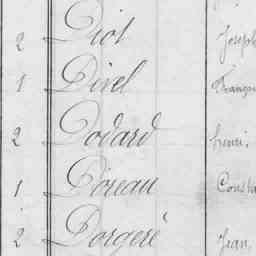 2 Diot Joseph
1 Divel François
2 Dodard henri.
1 Doreau Consta
2 Dorgeré Jean,